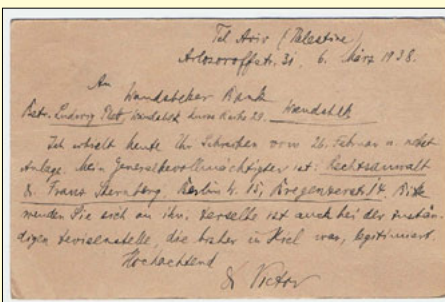 Tel Aviv (Palestine)
Arlosoroffstr. 31, 6. März 1938.
An
Wandsbeker Bank
Betr. Ludwig Wandsbek 29. Wandsbek
Ich erhielt heute Ihr Schreiben vom 26. Februar u. nebst
Anlage. Mein Generalbevollmächtigter ist: Rechtsanwalt
Dr. Franz Sternberg, Berlin W. 15, Bregenzerstr. 14. Bitte
wenden Sie sich an ihn. Derselbe ist auch bei der zustän-
digen Devisenstelle, die bisher in Kiel war, legitimiert.
Hochachtend
Dr Victor